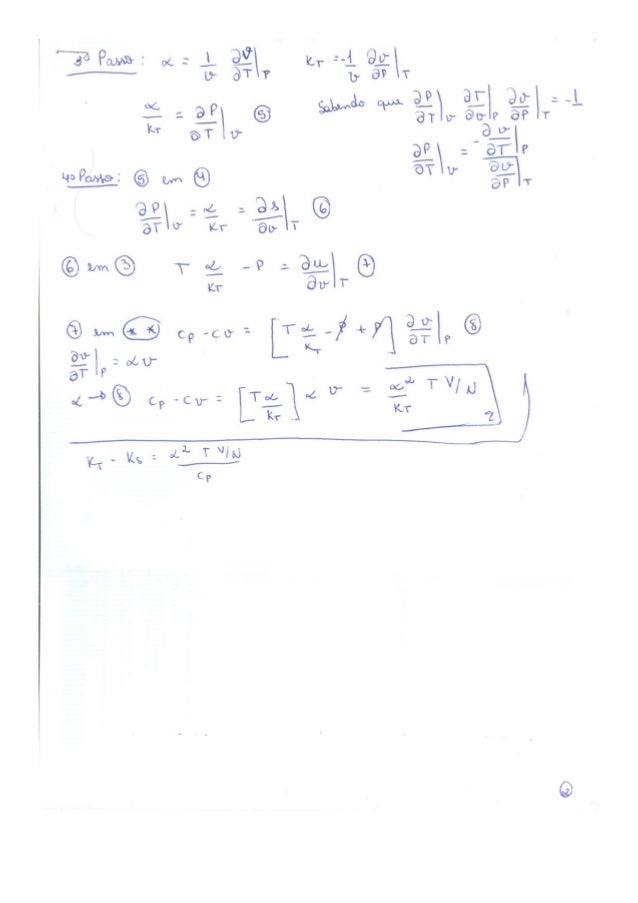 3º Passo: α = 1/v ∂v/∂T|P   KT = -1/v ∂v/∂P|T
α/KT = ∂P/∂T|v ⑤   Sabendo que ∂P/∂T|v ∂T/∂v|P ∂v/∂P|T = -1
∂P/∂T|v = -∂v/∂T|P / ∂v/∂P|T
4º Passo: ⑤ em ④
∂P/∂T|v = α/KT = ∂s/∂v|T ⑥
⑥ em ③   T α/KT - P = ∂u/∂v|T ⑦
⑦ em (**) cp - cv = [T α/KT - P + P] ∂v/∂T|P ⑧
∂v/∂T|P = α v
α → ⑧ cp - cv = [Tα/KT] α v = α² T V/N / KT
2
KT - KS = α² T V/N / cp
②